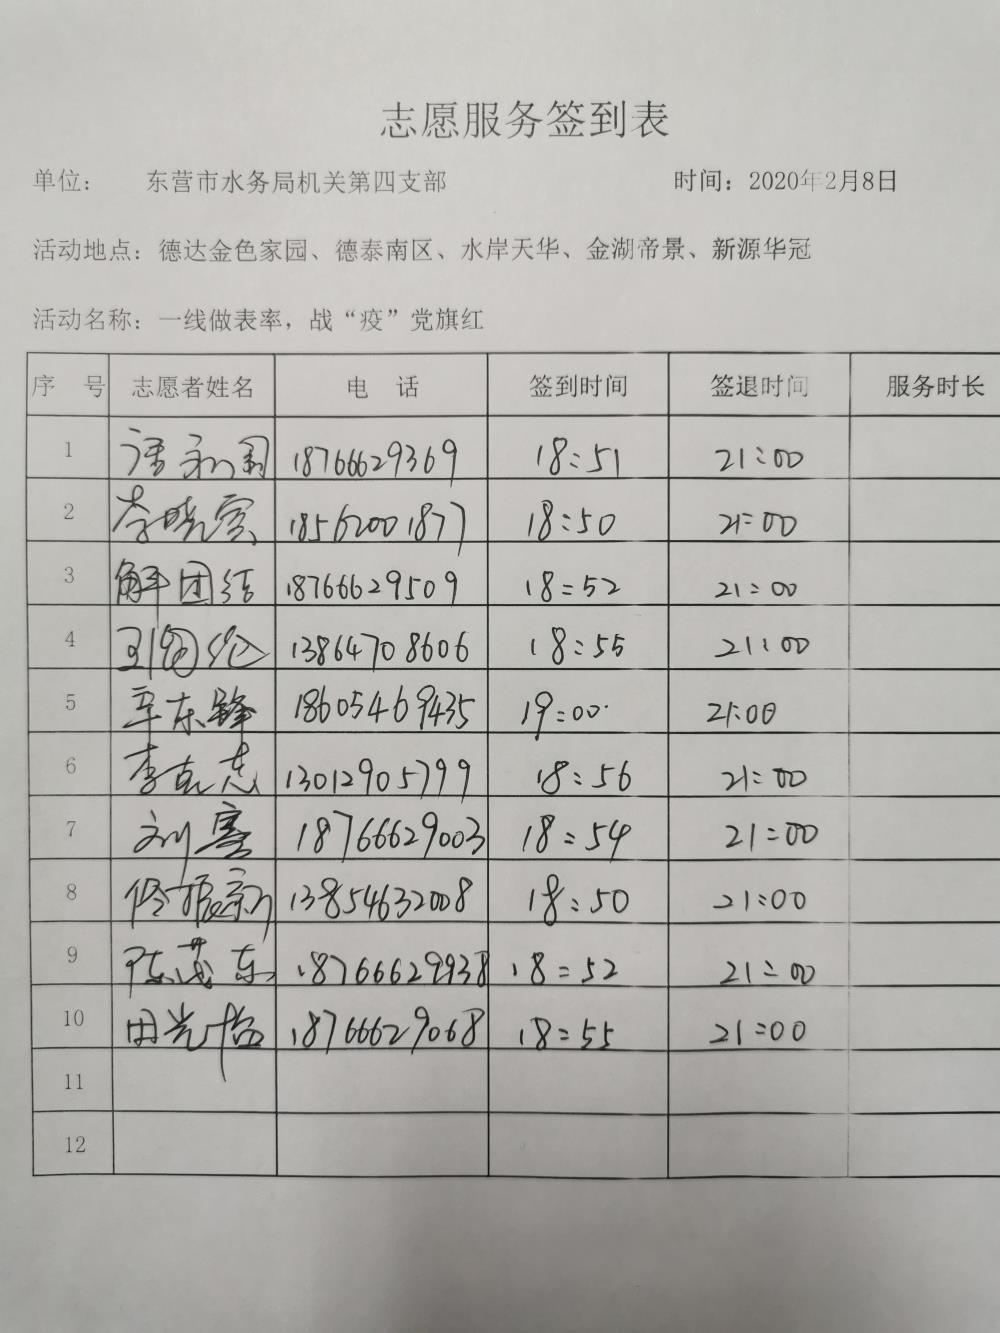 志愿服务签到表
单位： 东营市水务局机关第四支部 时间：2020年2月8日
活动地点：德达金色家园、德泰南区、水岸天华、金湖帝景、新源华冠
活动名称：一线做表率，战“疫”党旗红
序 号 志愿者姓名 电 话 签到时间 签退时间 服务时长
1 18766629369 18:51 21:00
2 李晓雲 18562001877 18:50 21:00
3 解团结 18766629509 18:52 21:00
4 13864708606 18:55 21:00
5 辛东锋 18605469435 19:00 21:00
6 李克忠 13012905799 18:56 21:00
7 刘 18766629003 18:54 21:00
8 佟振新 13854632008 18:50 21:00
9 陈茂东 18766629938 18:52 21:00
10 田光 18766629068 18:55 21:00
11
12